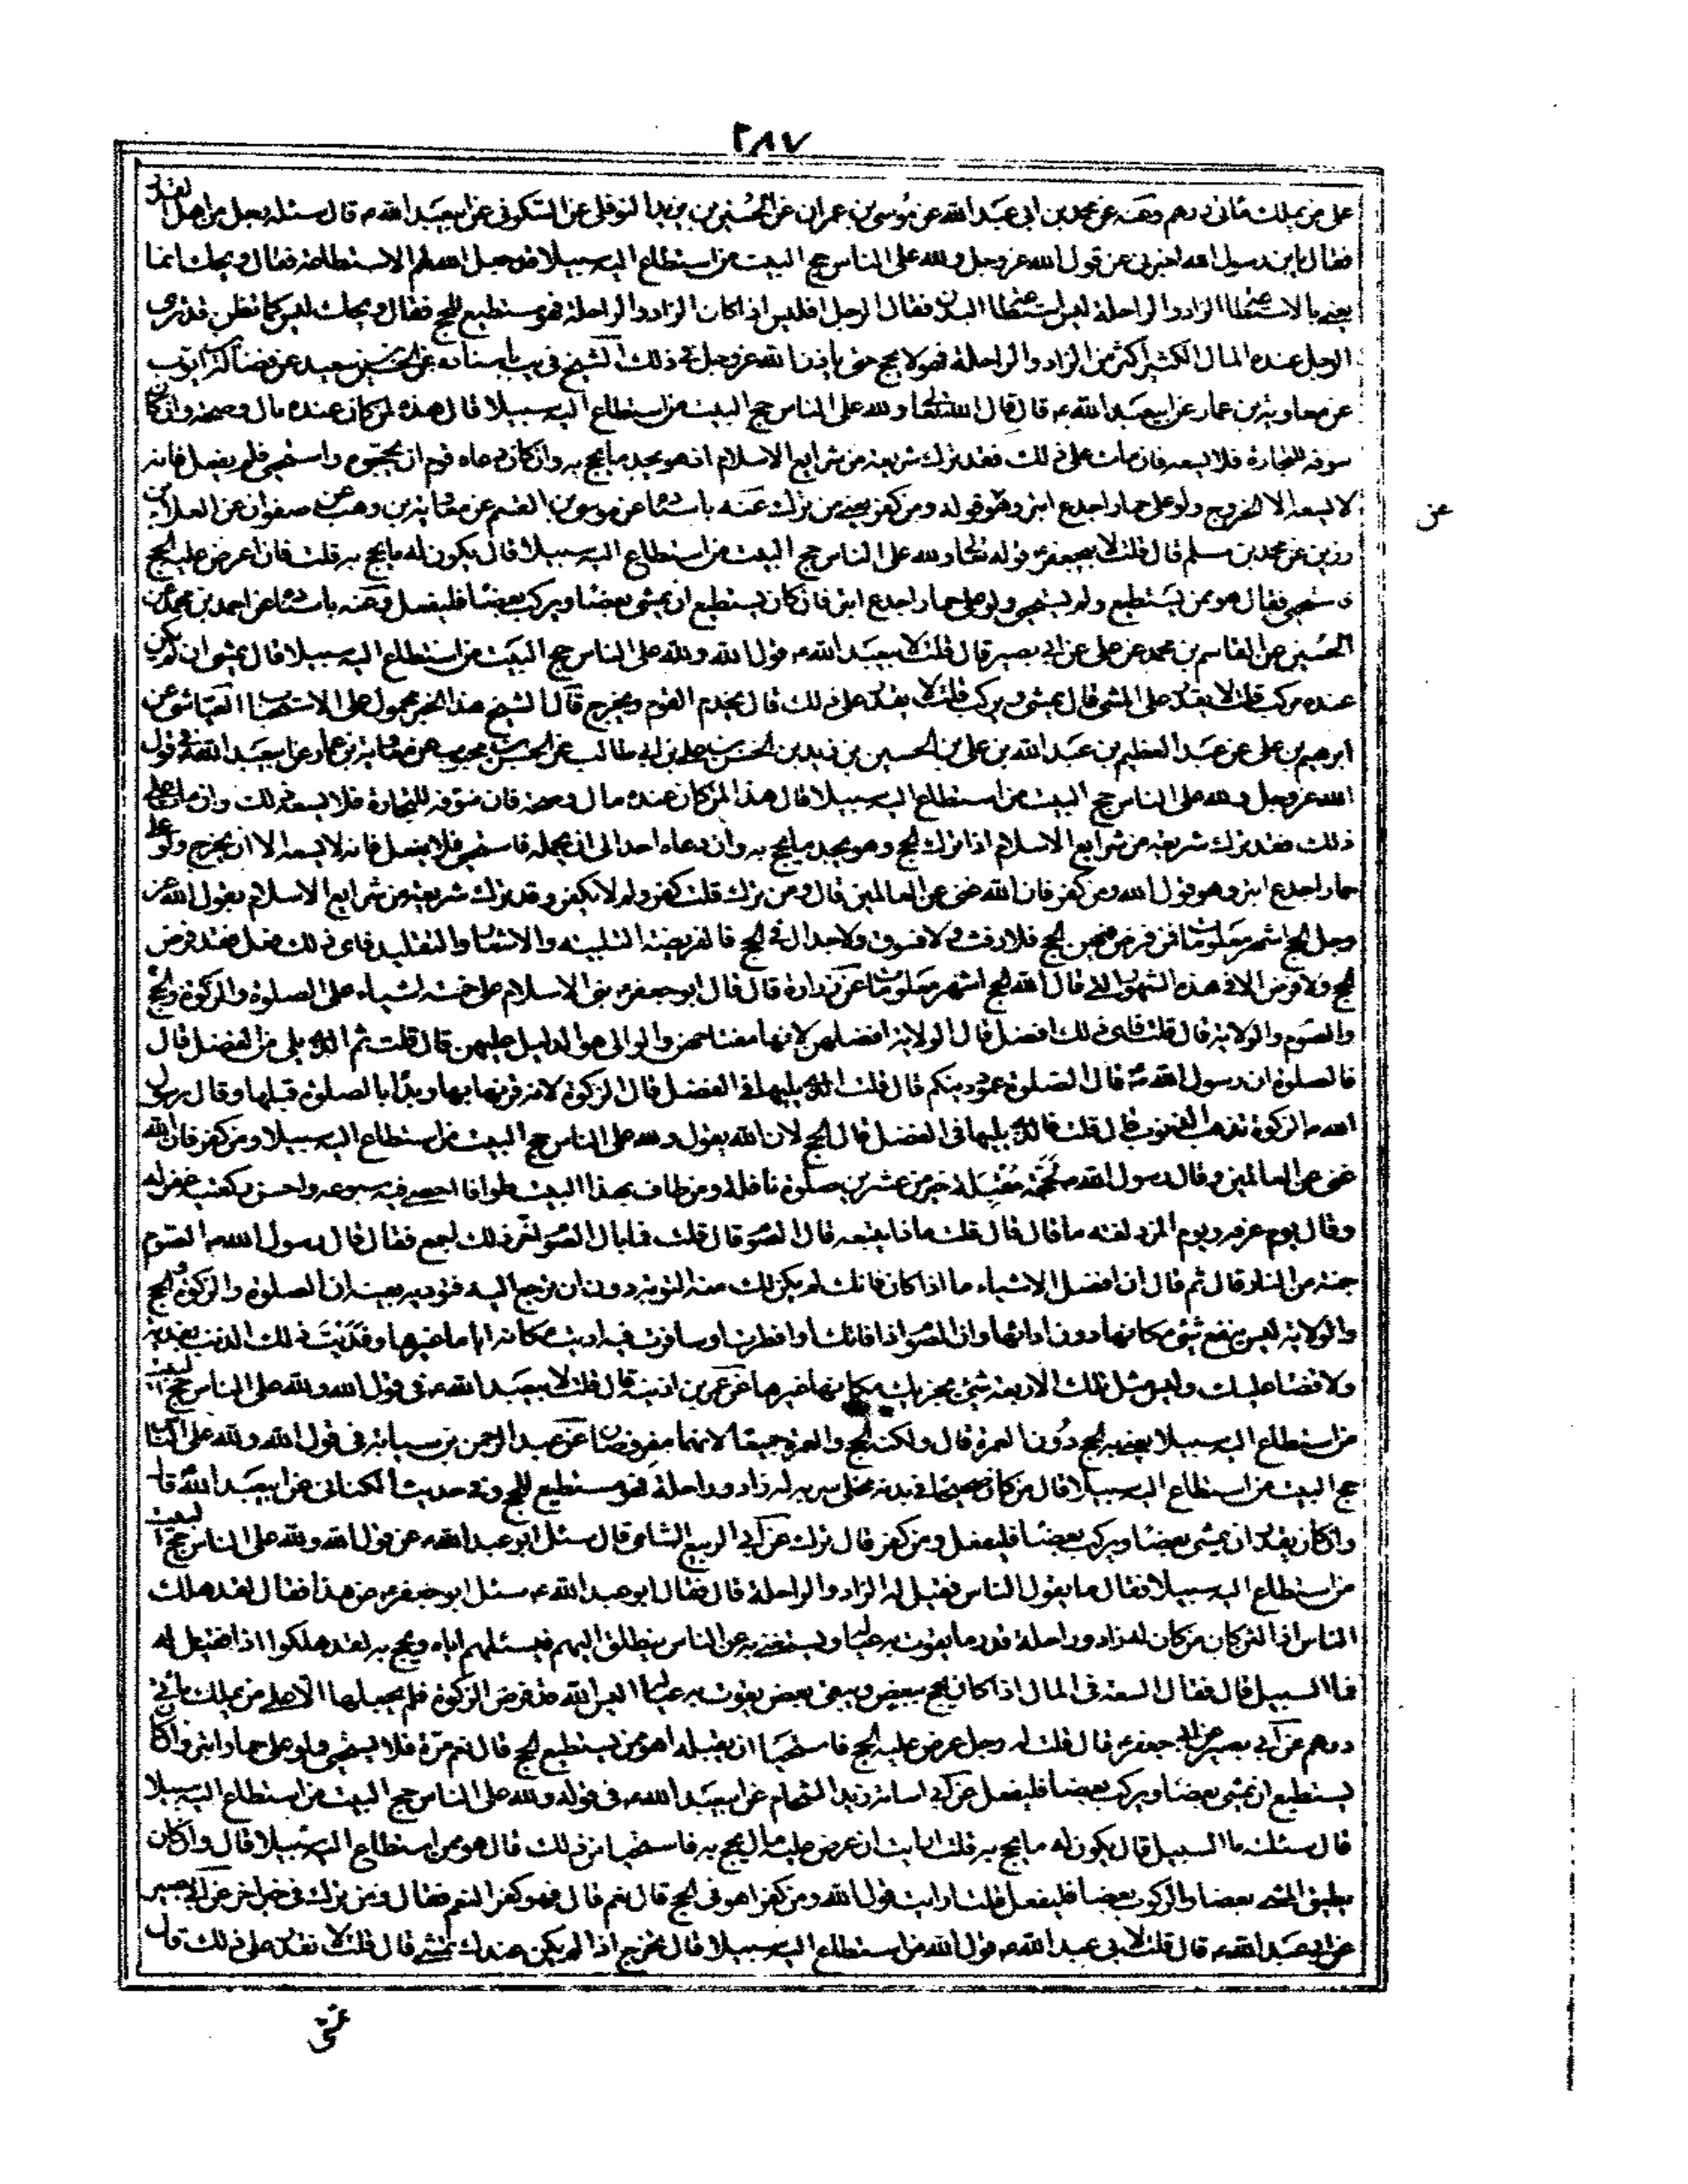 ٢٨٧
على من يملك مأتى درهم وعنه عن محمد بن ابى عبد الله عن موسى بن عمران عن الحسين بن يزيد النوفلى عن السكونى عن ابيعبد الله ع قال سئله رجل من اهل القدر
فقال يابن رسول الله اخبرنى عن قول الله عز وجل ولله على الناس حج البيت من استطاع اليه سبيلا قد جعل الله لهم الاستطاعة فقال ويحك انما
يعنى بالاستطاعة الزاد والراحلة ليس استطاعة البدن فقال الرجل افليس اذا كان الزاد والراحلة فهو مستطيع للحج فقال ويحك ليس كما تظن قد ترى
الرجل عنده المال الكثير اكثر من الزاد والراحلة فهو لا يحج حتى ياذن الله عز وجل فى ذلك الشيخ فى يب باسناده عن الحسين بن سعيد عن فضالة بن ايوب
عن معاوية بن عمار عن ابيعبد الله ع قال قال الله تعالى ولله على الناس حج البيت من استطاع اليه سبيلا قال هذه لمن كان عنده مال وصحة وان كان
سوفه للتجارة فلا يسعه فان مات على ذلك فقد ترك شريعة من شرايع الاسلام اذ هو يجد ما يحج به وان كان دعاه قوم ان يحجوه واستحيى فلم يفعل فانه
لا يسعه الا الخروج ولو على حمار اجدع ابتر وهو قوله ومن كفر يعنى من ترك عنه باسناده عن موسى بن القسم عن معاوية بن وهب عن صفوان عن العلاء بن
عن
رزين عن محمد بن مسلم قال قلت لابيجعفر ع قوله تعالى ولله على الناس حج البيت من استطاع اليه سبيلا قال يكون له ما يحج به قلت فان عرض عليه الحج
فاستحيى فقال هو ممن يستطيع ولم يستحيى ولو على حمار اجدع ابتر فان كان يستطيع ان يمشى بعضا ويركب بعضا فليفعل وعنه باسناده عن احمد بن محمد عن
الحسين عن القاسم بن محمد عن على عن ابى بصير قال قلت لابيعبد الله ع قول الله ولله على الناس حج البيت من استطاع اليه سبيلا قال يمشى ان لم يكن
عنده مركب قلت لا يقدر على المشى قال يمشى ويركب قلت لا يقدر على ذلك قال يخدم القوم ويخرج قال الشيخ هذا الخبر محمول على الاستحباب العياشى عن
ابرهيم بن على عن عبد العظيم بن عبد الله بن على بن الحسين بن زيد بن الحسن بن على بن ابى طالب عن الحسن بن محبوب عن معاوية بن عمار عن ابيعبد الله ع فى قول
الله عز وجل ولله على الناس حج البيت من استطاع اليه سبيلا قال هذا لمن كان عنده مال وصحة فان سوفه للتجارة فلا يسعه ذلك وان مات على
ذلك فقد ترك شريعة من شرايع الاسلام اذا ترك الحج وهو يجد ما يحج به وان دعاه احد الى ان يحمله فاستحيى فلا يفعل فانه لا يسعه الا ان يخرج ولو على
حمار اجدع ابتر وهو قول الله ومن كفر فان الله غنى عن العالمين قال ومن ترك قلت كفر ولم لا يكفر وقد ترك شريعة من شرايع الاسلام يقول الله عز
وجل الحج اشهر معلومات فمن فرض فيهن الحج فلا رفث ولا فسوق ولا جدال فى الحج فالفريضة التلبية والاشعار والتقليد فاى ذلك فعل فقد فرض
الحج ولا فرض الا فى هذه الشهور التى قال الله الحج اشهر معلومات عن زرارة قال قال ابو جعفر ع بنى الاسلام على خمسة اشياء على الصلوة والزكوة والحج
والصوم والولاية قال قلت فاى ذلك افضل قال الولاية افضلهن لانها مفتاحهن والوالى هو الدليل عليهن قال قلت ثم الذى يلى من الفضل قال
فالصلوة ان رسول الله ص قال الصلوة عمود دينكم قال قلت الذى يليها فى الفضل قال الزكوة لانه قرنها بها وبدا بالصلوة قبلها وقال رسول
الله ص الزكوة تذهب الذنوب قال قلت فالذى يليها فى الفضل قال الحج لان الله يقول ولله على الناس حج البيت من استطاع اليه سبيلا ومن كفر فان الله
غنى عن العالمين وقال رسول الله ص لحجة متقبلة خير من عشرين صلوة نافلة ومن طاف بهذا البيت طوافا احصى فيه سبوعه واحسن ركعتيه غفر له
وقال يوم عرفه ويوم المزدلفه ما قال قال قلت ماذا يتبعه قال الصوم قال قلت فما بال الصوم اخر ذلك اجمع فقال قال رسول الله ص الصوم
جنة من النار قال ثم قال ان افضل الاشياء ما اذا كان فاتك لم يكن لك منه التوبة دون ان ترجع اليه فتؤديه بعينه ان الصلوة والزكوة والحج
والولاية ليس ينفع شئ مكانها دون ادائها وان الصوم اذا فاتك او افطرت او سافرت فيه اديت مكانه اياما غيرها وفديت ذلك الذنب بفدية
ولا قضاء عليك وليس مثل تلك الاربعة شئ يجزيك مكانها غيرها عن عمر بن اذينة قال قلت لابيعبد الله ع فى قول الله ولله على الناس حج البيت
من استطاع اليه سبيلا يعنى به الحج دون العمرة قال ولكنه الحج والعمرة جميعا لانهما مفروضان عن عبد الرحمن بن سيابة فى قول الله ولله على الناس
حج البيت من استطاع اليه سبيلا قال من كان صحيحا فى بدنه مخلى سربه له زاد وراحلة فهو مستطيع للحج وفى حديث الكنانى عن ابيعبد الله ع قال
وان كان يقدر ان يمشى بعضا ويركب بعضا فليفعل ومن كفر قال ترك عن ابى الربيع الشامى قال سئل ابو عبد الله ع عن قول الله ولله على الناس حج البيت
من استطاع اليه سبيلا فقال ما يقول الناس فقيل له الزاد والراحلة قال فقال ابو عبد الله ع سئل ابو جعفر ع عن هذا فقال لقد هلك
الناس اذا لئن كان من كان له زاد وراحلة قدر ما يقوت به عياله ويستغنى به عن الناس ينطلق اليهم فيسئلهم اياه ويحج به لقد هلكوا اذا فقيل له
فما السبيل قال فقال السعة فى المال اذا كان يحج ببعض ويبقى بعض يقوت به عياله اليس الله قد فرض الزكوة فلم يجعلها الا على من يملك مأتى
درهم عن ابى بصير عن ابى جعفر ع قال قلت له رجل عرض عليه الحج فاستحيا ان يقبله اهو ممن يستطيع الحج قال نعم مره فلا يستحيى ولو على حمار ابتر وان كان
يستطيع ان يمشى بعضا ويركب بعضا فليفعل عن ابى اسامة زيد الشحام عن ابيعبد الله ع فى قوله ولله على الناس حج البيت من استطاع اليه سبيلا
قال سئلته ما السبيل قال يكون له ما يحج به قلت ارايت ان عرض عليه مال يحج به فاستحيا من ذلك قال هو ممن استطاع اليه سبيلا قال وان كان
يطيق المشى بعضا والركوب بعضا فليفعل قلت ارايت قول الله ومن كفر اهو فى الحج قال نعم قال فهو كفر النعم فقال ومن ترك فى خبر اخر عن ابى بصير
عن ابيعبد الله ع قال قلت لابى عبد الله ع قول الله من استطاع اليه سبيلا قال يخرج اذا لم يكن عندك تمشى قال قلت لا نقدر على ذلك قال